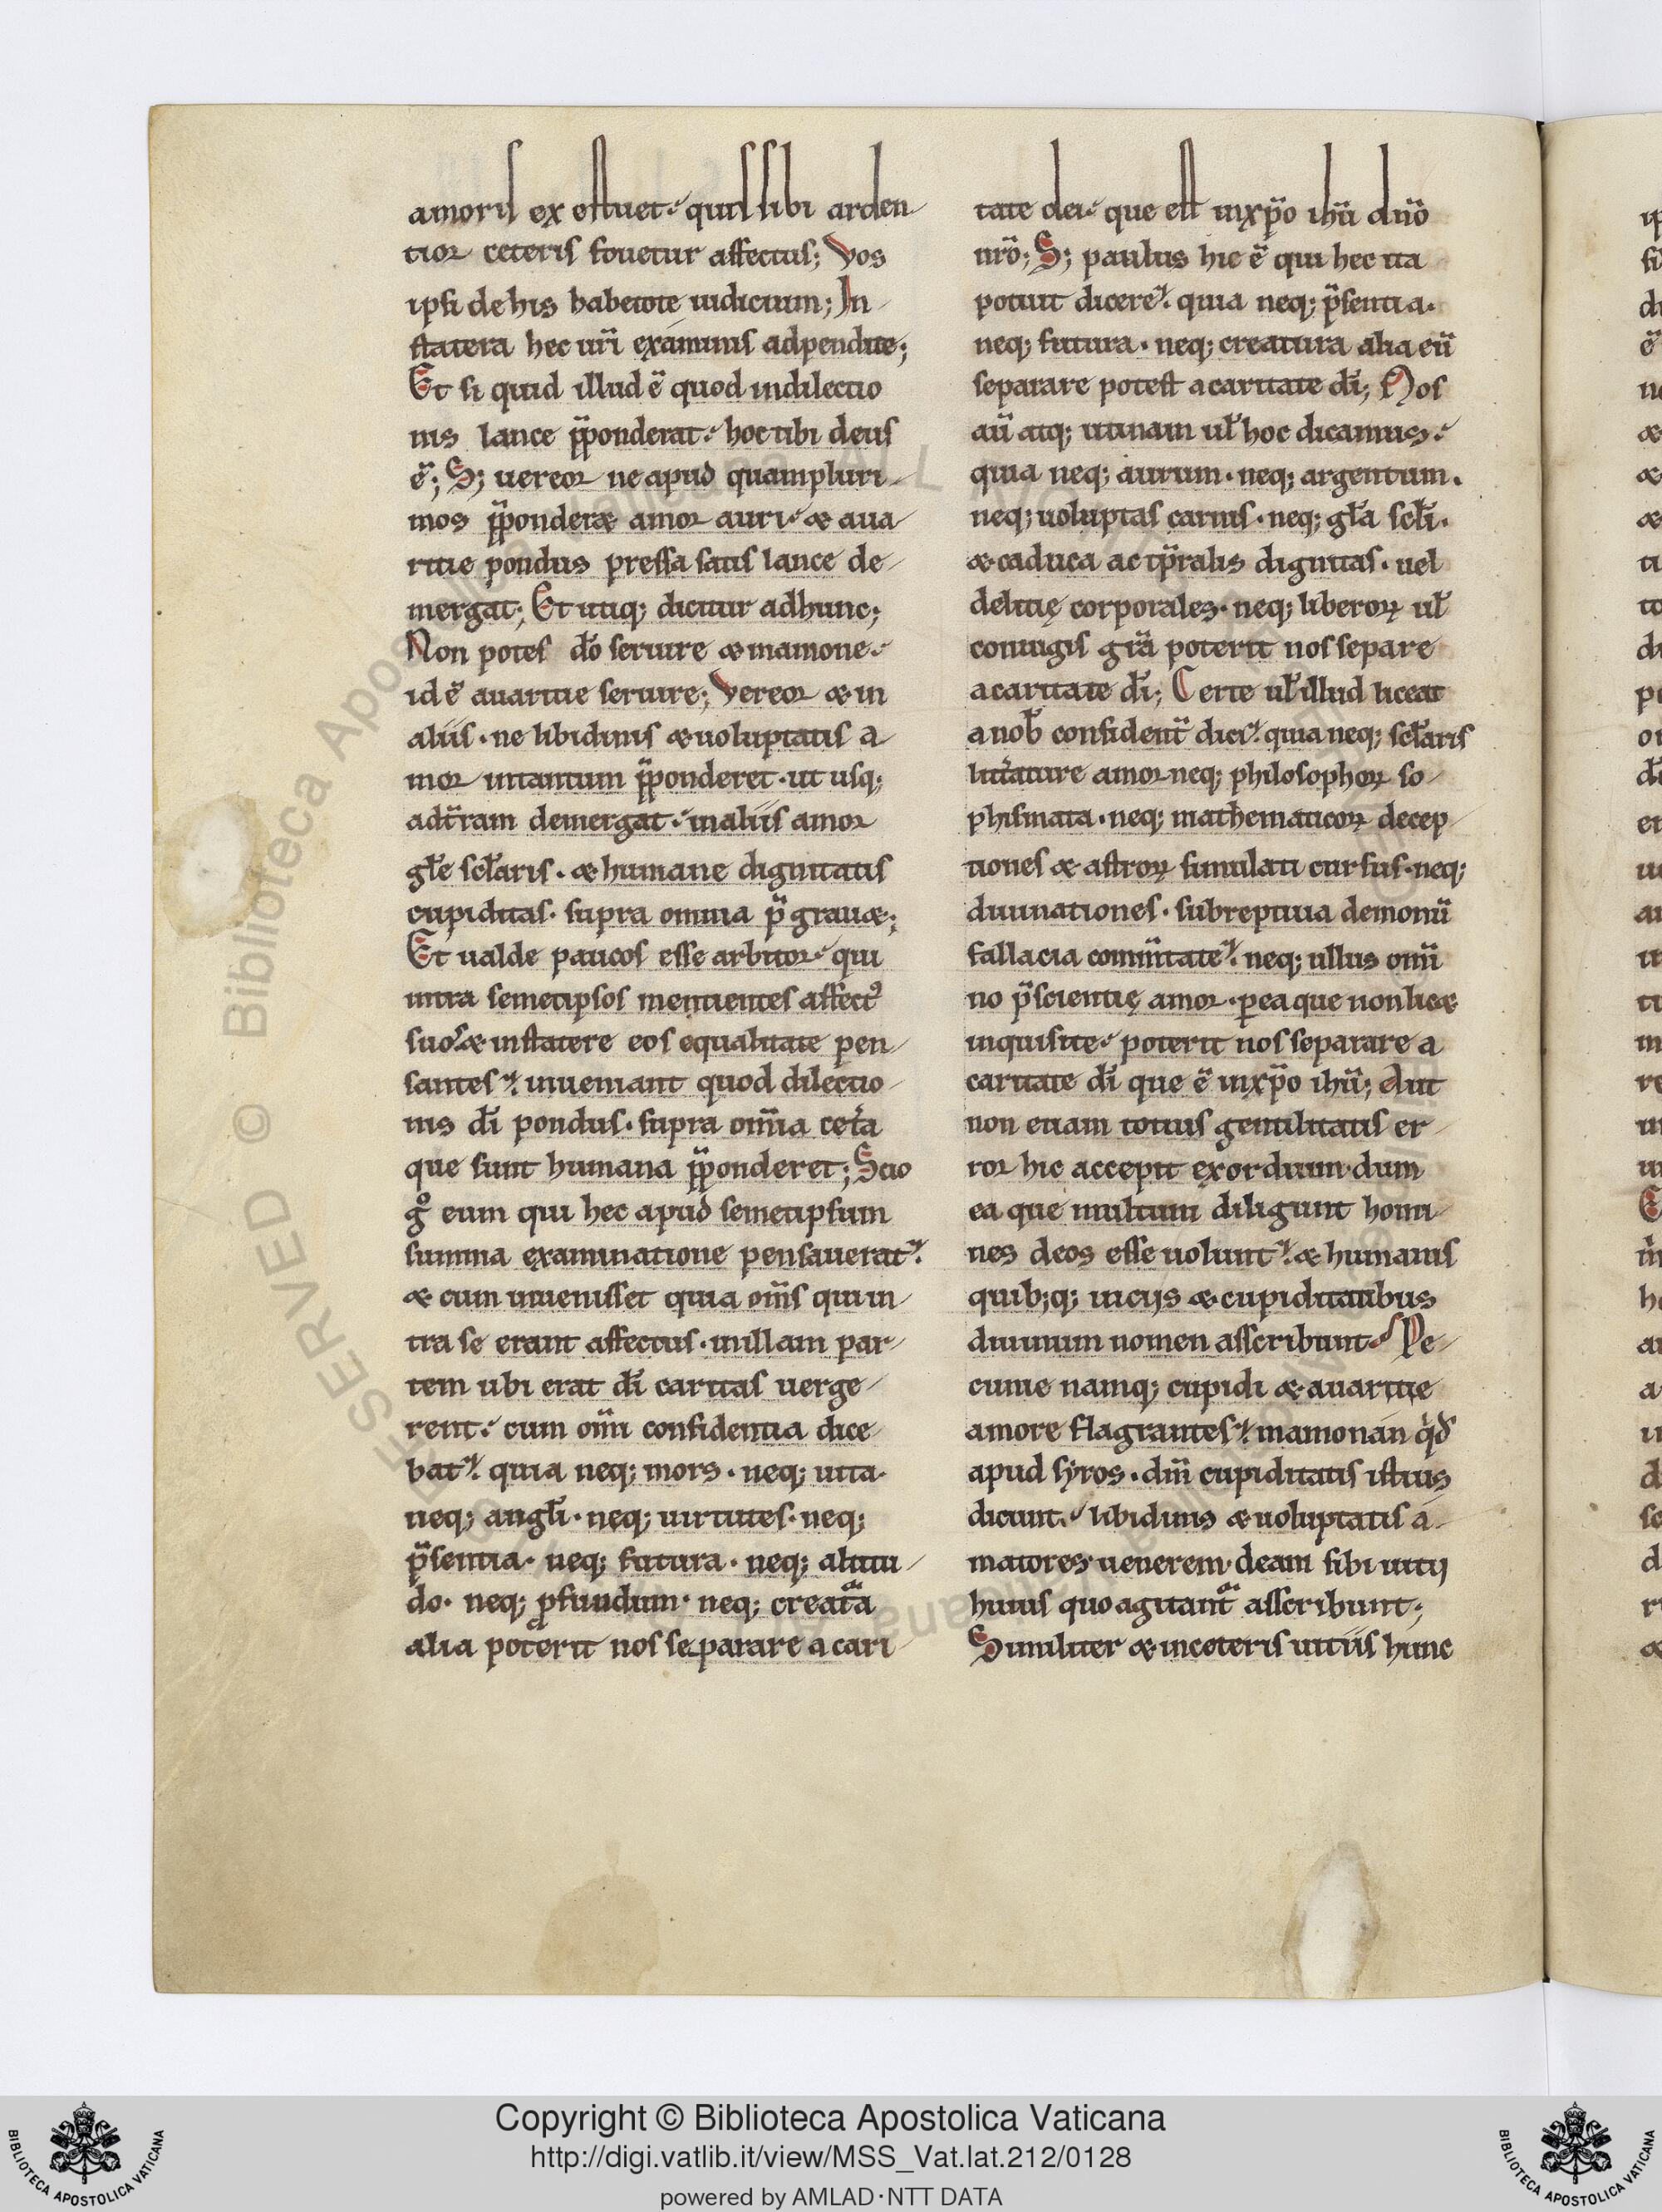 amoris ex estuet. quis sibi arden
tior ceteris fouetur affectus; Vos
ipsi de his habetote iudicium; In
statera hec ur̄i examinis adpendite;
Et si quid illud ē quod indilectio
nis lance p̄ponderat. hoc tibi deus
ē; S; uereor ne apud quampluri
mos p̄ponderæ amor auri. æ aua
ritie pondus pressa satis lance de
mergat; Et utiq; dicitur adhunc;
Non potes dō seruire æ mamone.
id ē auaritie seruire; Vereor æ in
aliis. ne libidinis æ uoluptatis a
mor intantum p̄ponderet. ut usq;
adt̄ram demergat. inaliis amor
gl̄e scl̄aris. æ humane dignitatis
cupiditas. supra omnia p̄grauæ;
Et ualde paucos esse arbitor. qui
intra semetipsos mentientes affect᾿
suos. æ instatere eos equalitate pen
santes. inueniant quod dilectio
nis dī pondus. supra om̄ia cet̄a
que sunt humana p̄ponderet; Scio
gͦ eum qui hec apud semetipsum
summa examinatione pensauerat.
æ cum inuenisset quia om̄s qui in
tra se erant affectus. nullam par
tem ubi erat dī caritas uerge
rent. cum om̄i confidentia dice
bat. quia neq; mors. neq; uita.
neq; angl̄i. neq; uirtutes. neq;
p̄sentia. neq; futura. neq; altitu
do. neq; ꝓfundum. neq; creatᵃa
alia poterit nos separare a cari
tate dei. que est inxp̄o ihū dn̄o
nr̄o; S; paulus hic ē qui hec ita
potuit dicere. quia neq; p̄sentia.
neq; futura. neq; creatura alia eū
separare potest a caritate dī; Nos
aū atq; utinam ul̄ hoc dicamus.
quia neq; aurum. neq; argentum.
neq; uoluptas carnis. neq; gl̄a scl̄i.
æ caduca ac tp̄ralis dignitas. uel
delitię corporales. neq; liberoꝝ ul̄
coniugis gr̄a poterit nos separe
a caritate dī; Certe ul̄ illud liceat
a nob̄ confident̄ dici. quia neq; scl̄aris
litt̄ature amor neq; philosophoꝝ so
phismata. neq; mathematicoꝝ decep
tiones æ astroꝝ simulati cursus. neq;
diuinationes. subreptiua demonū
fallacia comm̄tate. neq; ullus omī
no p̄scientię amor. ꝑ ea que non licæ
inquisite. poterit nos separare a
caritate dī que ē inxp̄o ihū; Aut
non etiam totius gentilitatis er
ror hic accepit exordium. dum
ea que multum diligunt homi
nes deos esse uolunt. æ humanis
quib;q; uicijs æ cupiditatibus
diuinum nomen asscribunt. Pe
cunie namq; cupidi æ auaritie
amore flagrantes. mamonan qͥd
apud syros. dm̄ cupiditatis istius
dicunt. libidinis æ uoluptatis a
matores uenerem. deam sibi uitij
huius quo agitantᵃ asscribunt;
Similiter æ inceteris uitiis hunc
Copyright © Biblioteca Apostolica Vaticana
http://digi.vatlib.it/view/MSS_Vat.lat.212/0128
powered by AMLAD·NTT DATA